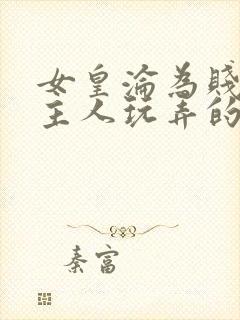 女皇淪為賤
主人玩弄的
秦富